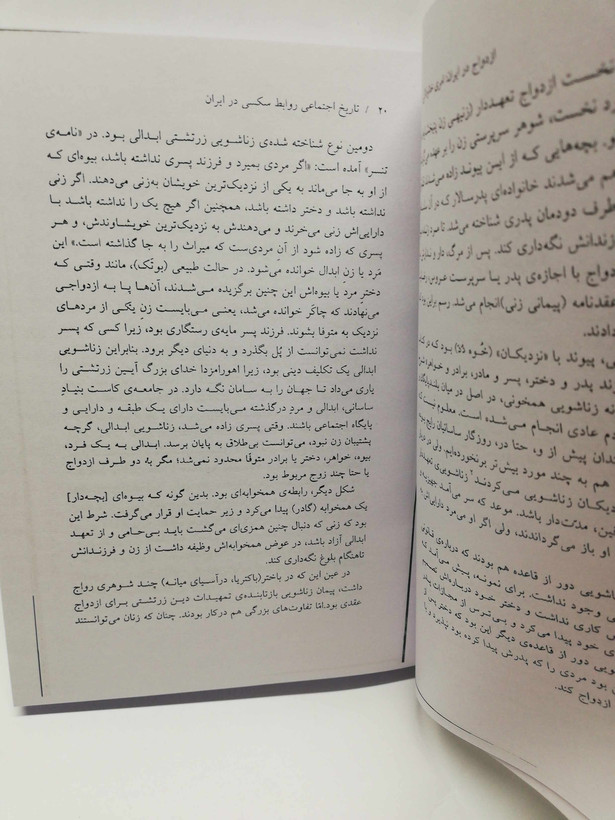 ۲۰ / تاریخ اجتماعی روابط سکسی در ایران
دومین نوع شناخته شده‌ی زناشویی زرتشتی ابدالی بود. در «نامه‌ی
تنسر» آمده است: «اگر مردی بمیرد و فرزند پسری نداشته باشد، بیوه‌ای که
از او به جا می‌ماند به یکی از نزدیک‌ترین خویشان به‌زنی می‌دهند. اگر زنی
نداشته باشد و دختر داشته باشد، همچنین اگر هیچ یک را نداشته باشد با
دارایی‌اش زنی می‌خرند و می‌دهندش به نزدیک‌ترین خویشاوندش، و هر
پسری که زاده شود از آنِ مردی‌ست که میراث را به جا گذاشته است.» این
مَرد یا زنِ ابدال خوانده می‌شود. در حالت طبیعی (بوتَک)، مانند وقتی که
دخترِ مرد یا بیوه‌اش این چنین برگزیده می‌شدند، آن‌ها پا به ازدواجی
می‌نهادند که چاکَر خوانده می‌شد، یعنی می‌بایست زن یکی از مردهای
نزدیک به متوفا بشوند. فرزند پسر مایه‌ی رستگاری بود، زیرا کسی که پسر
نداشت نمی‌توانست از پُل بگذرد و به دنیای دیگر برود. بنابراین زناشویی
ابدالی یک تکلیف دینی بود، زیرا اهورامزدا خدای بزرگ آیین زرتشتی را
یاری می‌داد تا جهان را به سامان نگه دارد. در جامعه‌ی کاست بنیادِ
ساسانی، ابدالی و مردِ درگذشته می‌بایست دارای یک طبقه و دارایی و
پایگاه اجتماعی باشند. وقتی پسری زاده می‌شد، زناشویی ابدالی، گرچه
پشتیبان زن نبود، می‌توانست بی‌طلاق به پایان برسد. ابدالی به یک فرد،
بیوه، خواهر، دختر یا برادر متوفا محدود نمی‌شد؛ مگر به دو طرف ازدواج
یا حتا چند زوج مربوط بود.
شکل دیگر، رابطه‌ی همخوابه‌ای بود. بدین گونه که بیوه‌ای [بچه‌دار]
یک همخوابه (گادر) پیدا می‌کرد و زیر حمایت او قرار می‌گرفت. شرط این
بود که زنی که دنبال چنین همزی‌ای می‌گشت باید بی‌حامی و از تعهد
ابدالی آزاد باشد، در عوض همخوابه‌اش وظیفه داشت از زن و فرزندانش
تاهنگام بلوغ نگه‌داری کند.
در عین این که در باختر(باکتریا، درآسیای میانه) چند شوهری رواج
داشت، پیمان زناشویی بازتابنده‌ی تمهیدات دین زرتشتی برای ازدواج
عقدی بود.امّا تفاوت‌های بزرگی هم درکار بودند. چنان که زنان می‌توانستند
ازدواج در ایران
نخست ازدواج تعهددار
نخست، شوهر سرپرستی زن را
بچه‌هایی که از این پیوند زاده می‌شدند
می شدند خانواده‌ای پدرسالار که در آن
طرف دودمان پدری شناخته می‌شد.
زندانش نگه‌داری کند. پس از مرگ،
دواج با اجازه‌ی پدر یا سرپرست عروس
عقدنامه (پیمانی زنی)انجام می‌شد.
دادند.
پیوند با «نزدیکان»
پدر و دختر، پسر و مادر، برادر و خواهر
زناشویی همخونی، در اصل در میان
عادی انجام می‌شده است. معلوم نیست
پیش از و، حتا در، روزگار ساسانیان رایج
هم به چند مورد بیش‌تر برنخورده‌ایم.
زناشویی می‌کردند.
مدّت‌دار باشد. موعد که سر می‌آمد
او باز می‌گرداندند، ولی اگر او می‌مرد
دور از قاعده هم بودند که درباره‌ی
وجود نداشت. برای نمونه، پیش می‌آمد که
کاری نداشت و دختر خود
خود پیدا می‌کرد و بی‌ترس از مجازات
دور از قاعده‌ی دیگر این بود که دختر پس از
بود مردی را که پدرش پیدا کرده بود
ازدواج کند.